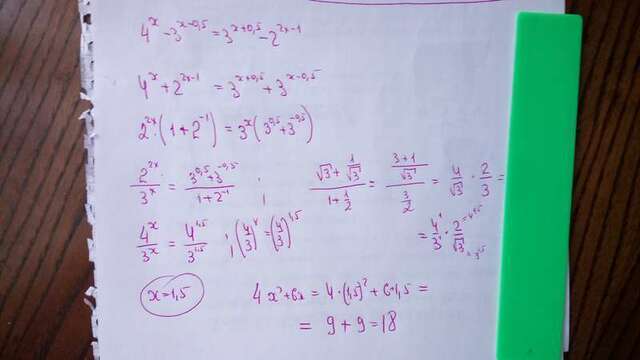 4^x - 3^{x-0,5} = 3^{x+0,5} - 2^{2x-1}
4^x + 2^{2x-1} = 3^{x+0,5} + 3^{x-0,5}
2^{2x}(1+2^{-1}) = 3^x(3^{0,5}+3^{-0,5})
\frac{2^{2x}}{3^x} = \frac{3^{0,5}+3^{-0,5}}{1+2^{-1}} ; \frac{\sqrt{3}+\frac{1}{\sqrt{3}}}{1+\frac{1}{2}} = \frac{\frac{3+1}{\sqrt{3}}}{\frac{3}{2}} = \frac{4}{\sqrt{3}} \cdot \frac{2}{3} =
\frac{4^x}{3^x} = \frac{4^{1,5}}{3^{1,5}} ; (\frac{4}{3})^x = (\frac{4}{3})^{1,5} = \frac{4^1 \cdot 2 = 4^{0,5}}{3^1 \cdot \sqrt{3} = 3^{0,5}}
x = 1,5 4x^2 + 6x = 4 \cdot (1,5)^2 + 6 \cdot 1,5 =
= 9 + 9 = 18